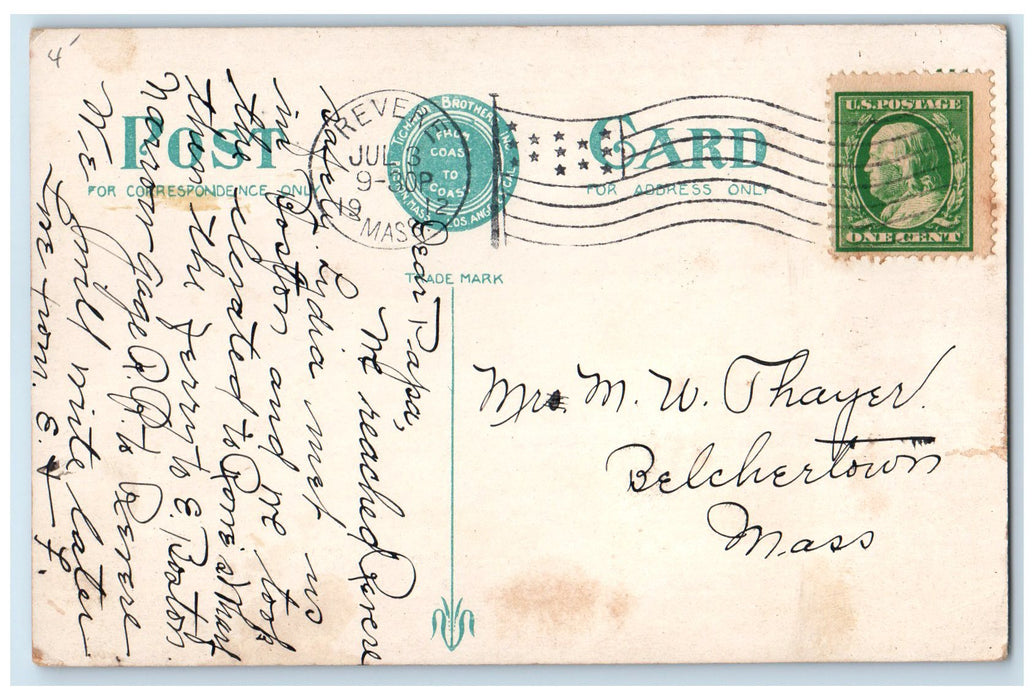 4
POST CARD
FOR CORRESPONDENCE ONLY
FOR ADDRESS ONLY
TICHNOR BROTHERS INC.
FROM
COAST
TO
COAST
BOSTON, MASS. LOS ANGELES, CAL.
TRADE MARK
REVERE
JUL 8
9-30P
1912
MASS.
U.S. POSTAGE
ONE CENT
Dear Papa,
We reached Revere
safely. Lydia met us
in Boston and we took
the elevated to Rowe's Wharf
then the ferry to E. Boston
Narrow Gage R.R. to Revere.
We will write later
me from. E. & F.
Mr. M. W. Thayer.
Belchertown
Mass